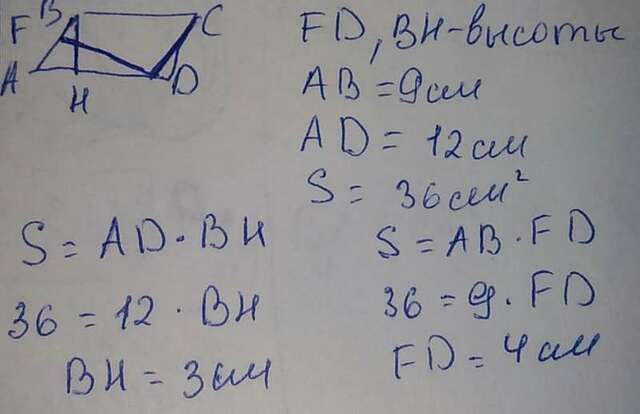 B C
F
A D
H
FD, BH-высоты
AB = 9см
AD = 12см
S = 36см²
S = AD · BH
36 = 12 · BH
BH = 3см
S = AB · FD
36 = 9 · FD
FD = 4см